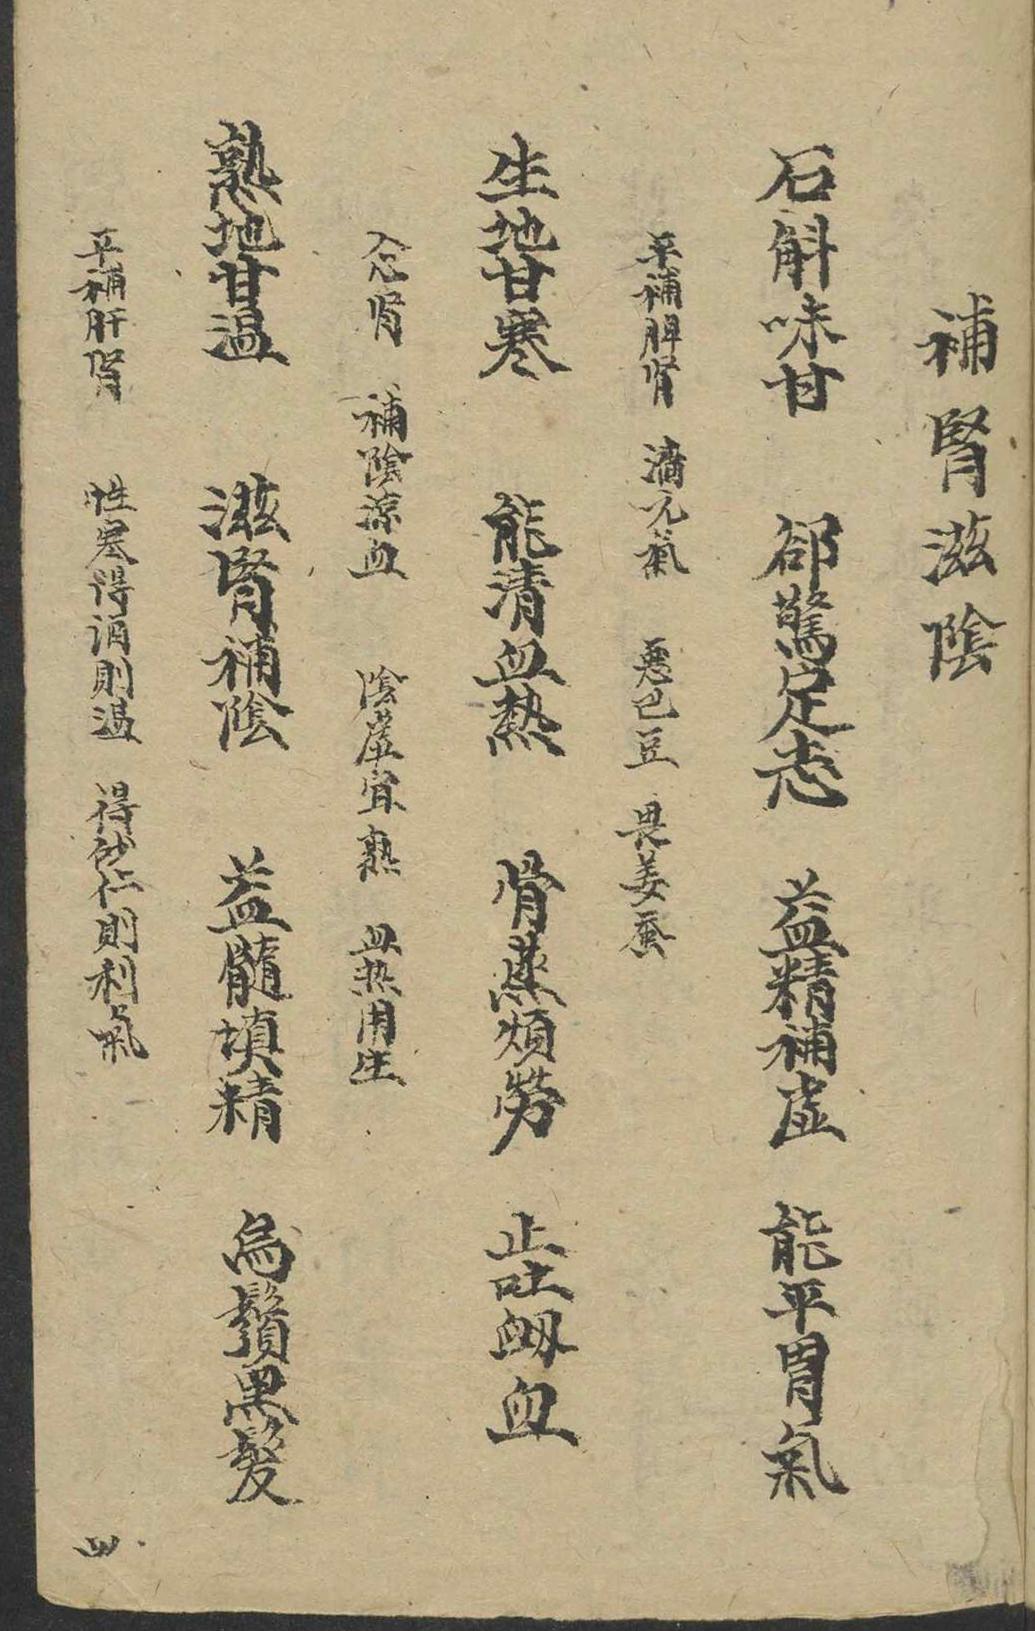 補腎滋陰
石斛味甘 郤驚定志 益精補虛 能平胃氣
平補脾肾 濇元氣 惡巴豆 畏姜蚕
生地甘寒 能清血熱 骨蒸煩勞 止吐衂血
入心肾 補陰涼血 陰虛宜熟 血热用生
熟地甘温 滋腎補陰 益髓填精 烏鬚黑髮
平補肝肾 性寒得酒則温 得砂仁則利氣